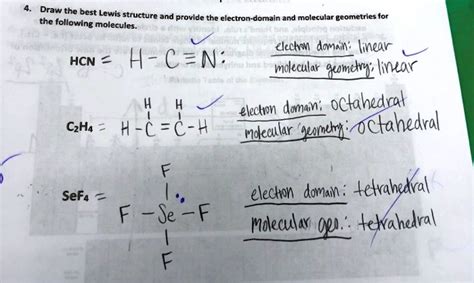 4. Draw the best Lewis structure and provide the electron-domain and molecular geometries for
the following molecules.
HCN = H - C ≡ N: electron domain: linear
molecular geometry: linear
H H
C₂H₄ = H - C = C - H electron domain: octahedral
molecular geometry: octahedral
F
SeF₄ = F - Se - F electron domain: tetrahedral
Molecular geo.: tetrahedral
F